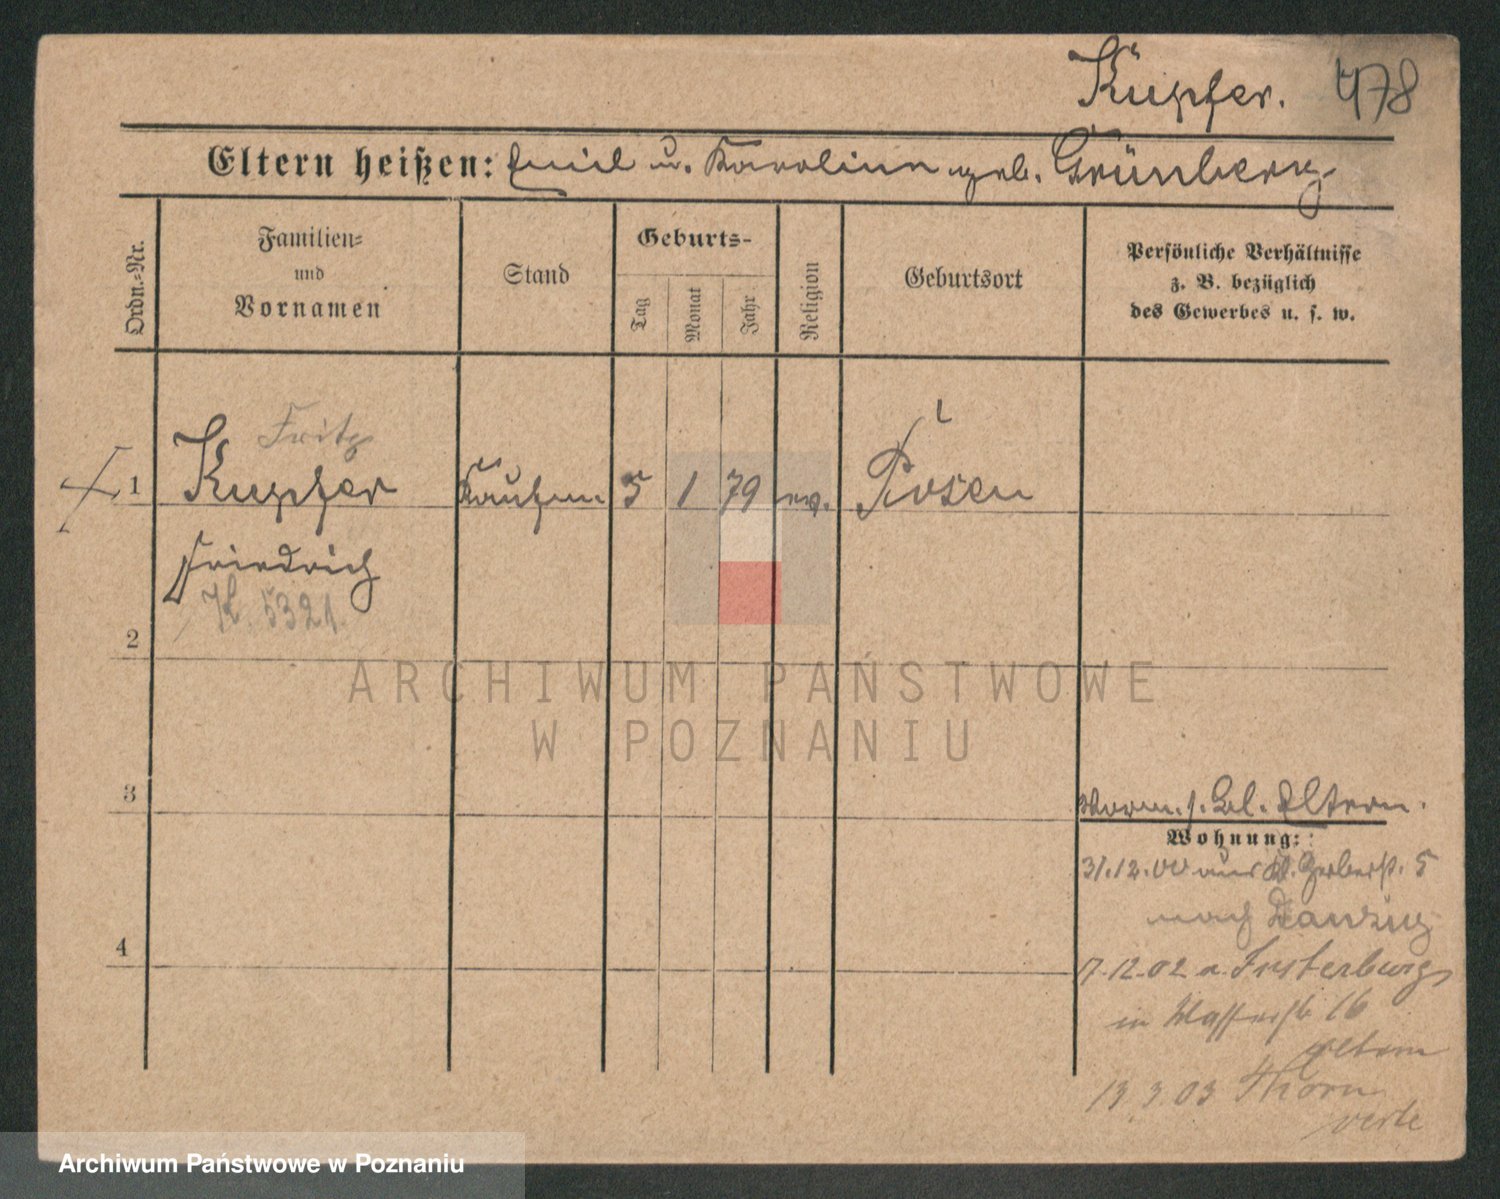 Kupfer. 478
Eltern heißen: Emil u. Karoline geb. Grünberg
Ordn.-Nr.
Familien- und Vornamen
Stand
Geburts-
Tag
Monat
Jahr
Religion
Geburtsort
Persönliche Verhältnisse
z. B. bezüglich
des Gewerbes u. s. w.
Fritz
1 Kupfer Kaufm. 5 1 79 ev. Posen
Friedrich
K. 5321
2
ARCHIWUM PAŃSTWOWE
W POZNANIU
3
Vorm. s. Bl. Eltern.
Wohnung:
31.12.00 aus Gerberst. 5
nach Danzig
4
17.12.02 a. Insterburg
in Wasserstr 16
Eltern
13.3.03 Thorn
Archiwum Państwowe w Poznaniu